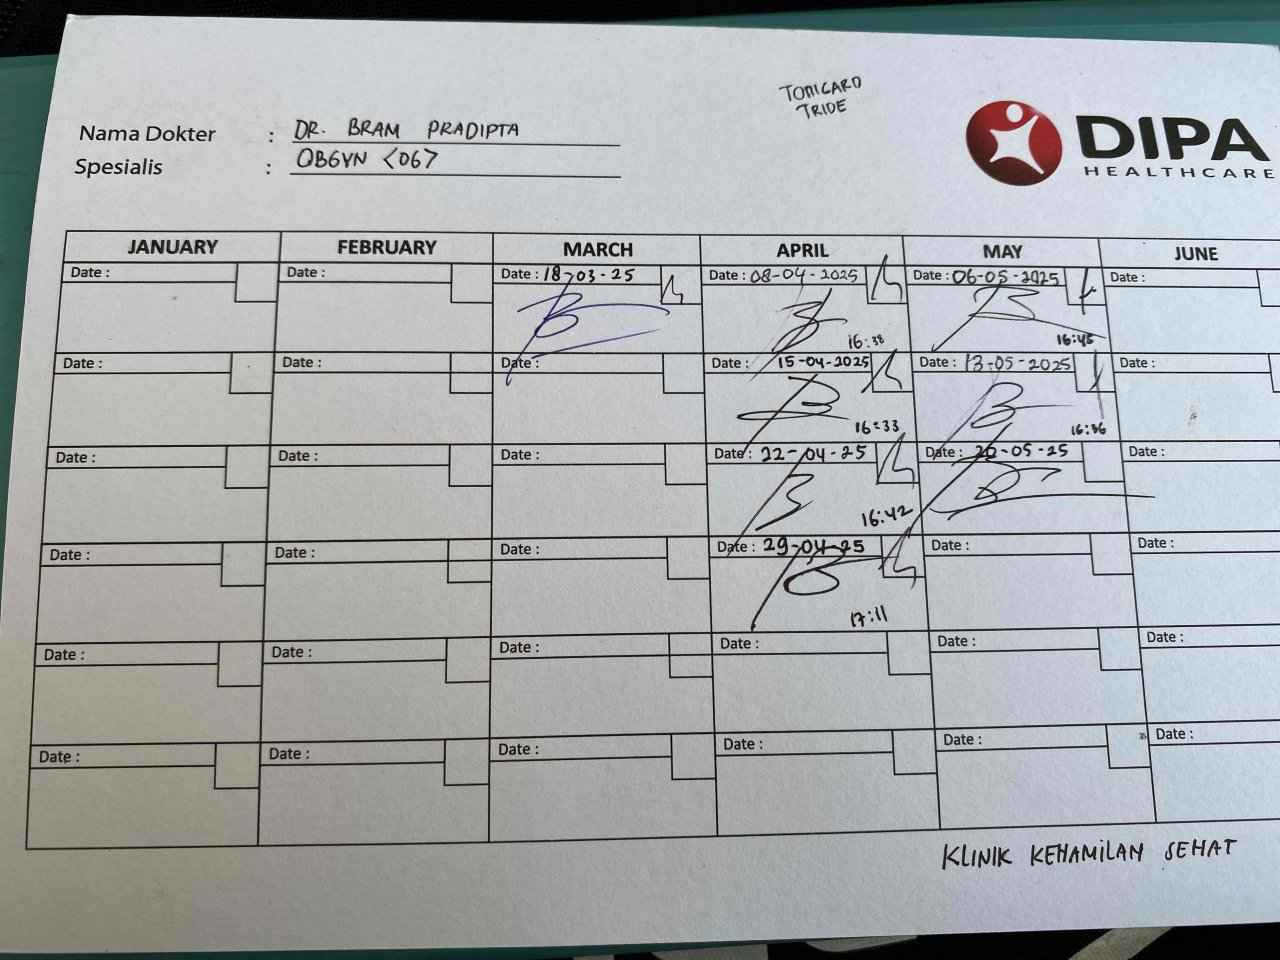 TONICARD
TRIDE
Nama Dokter : DR. BRAM PRADIPTA
Spesialis : OBGYN <067
DIPA
HEALTHCARE
JANUARY FEBRUARY MARCH APRIL MAY JUNE
Date : Date : Date : 18-03-25 Date : 08-04-2025 Date : 06-05-2025 Date :
16:38 16:45
Date : Date : Date : Date : 15-04-2025 Date : 13-05-2025 Date :
16:33 16:36
Date : Date : Date : Date : 22-04-25 Date : 20-05-25 Date :
16:42
Date : Date : Date : Date : 29-04-25 Date : Date :
17:11
Date : Date : Date : Date : Date : Date :
Date : Date : Date : Date : Date : Date :
KLINIK KEHAMILAN SEHAT